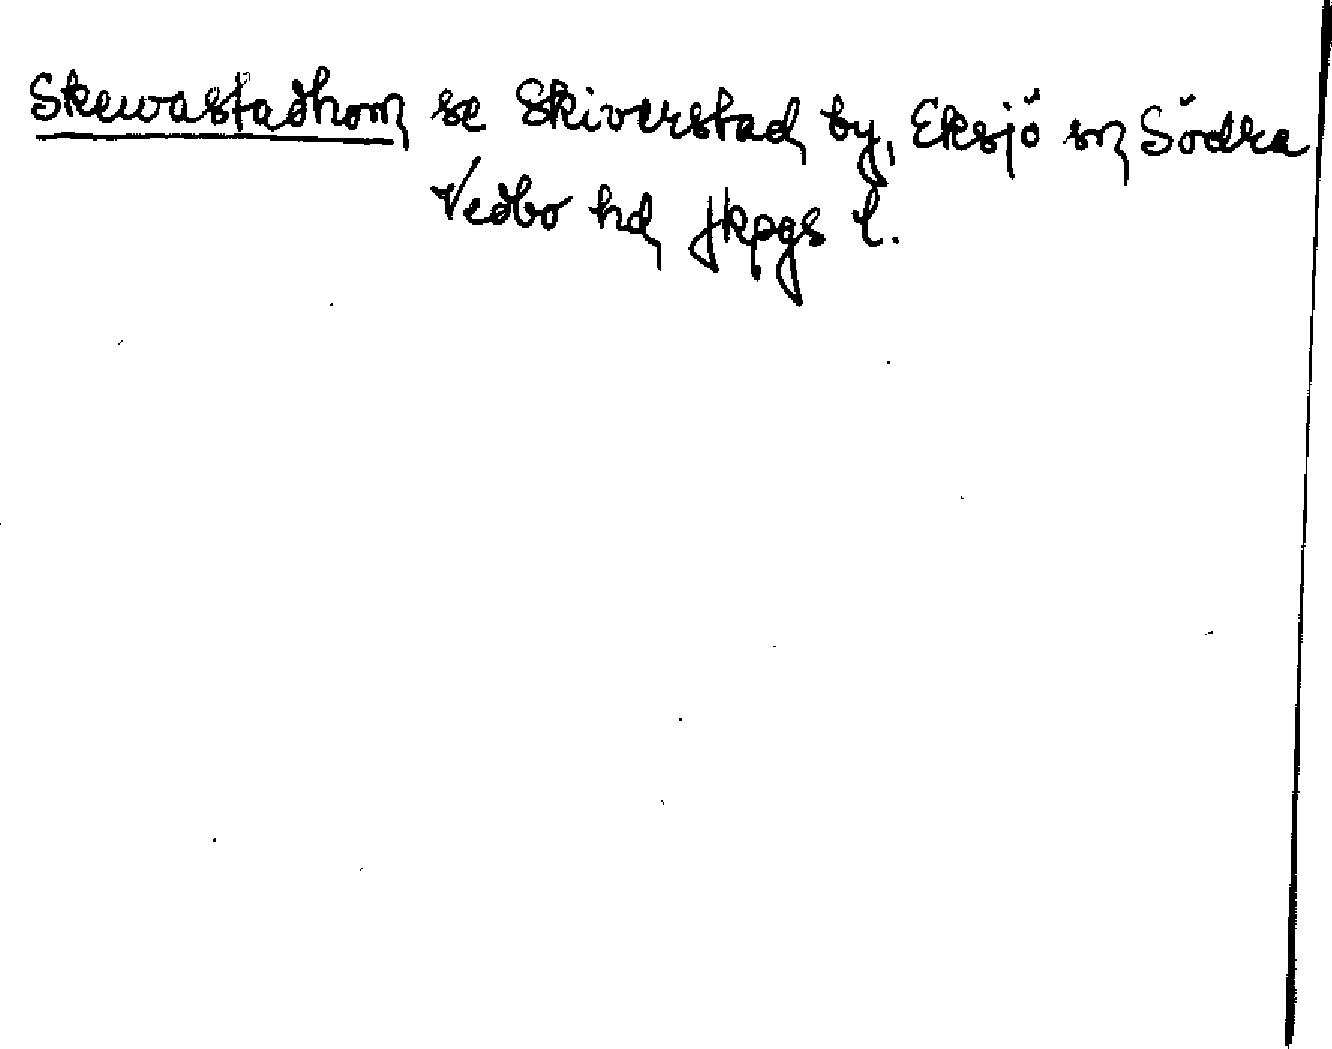 Skewastadhom se Skiverstad by, Eksjö sn Södra
Vedbo hd Jkpgs l.